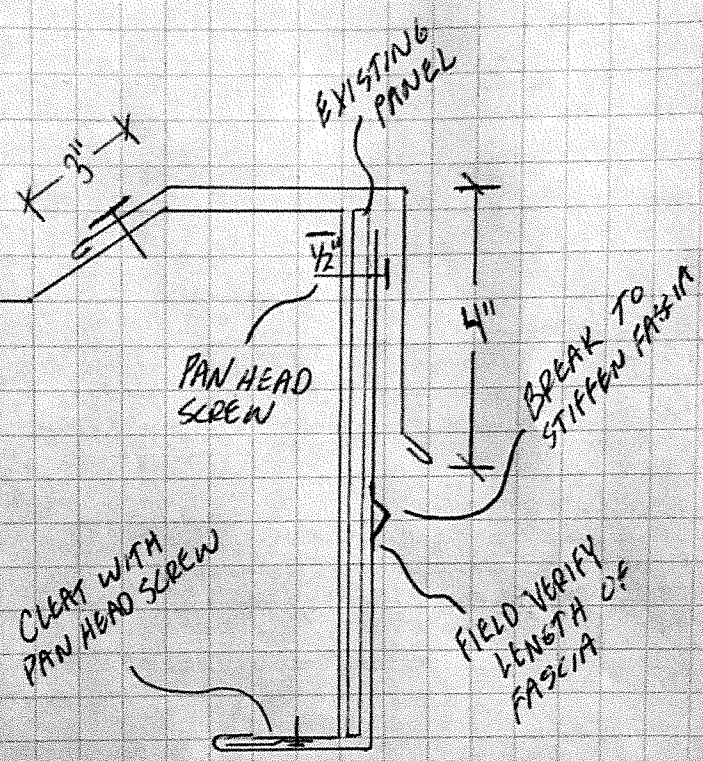 EXISTING
PANEL
3"
1/2"
4"
PAN HEAD
SCREW
BREAK TO
STIFFEN FASSIA
CLEAT WITH
PAN HEAD SCREW
FIELD VERIFY
LENGTH OF
FASCIA